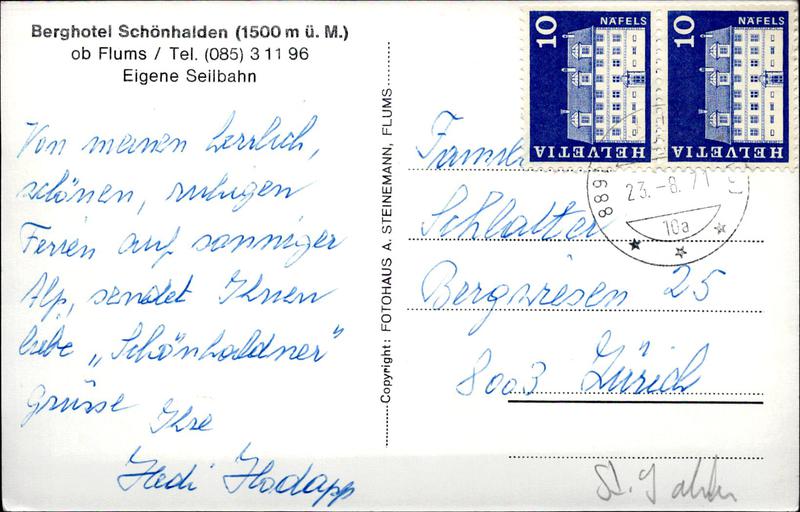 Berghotel Schönhalden (1500 m ü. M.)
ob Flums / Tel. (085) 3 11 96
Eigene Seilbahn
Von meinen herrlich,
schönen, ruhigen
Ferien auf sonniger
Alp, sendet Ihnen
liebe „Schönhaldner"
Grüsse
Ihre
Hedi Hodapp
Copyright: FOTOHAUS A. STEINEMANN, FLUMS
10 NÄFELS
HELVETIA
10 NÄFELS
HELVETIA
23.-8.71
10a
Familie
Schlatter
Bergwiesen 25
8003 Zürich
St. Gallen